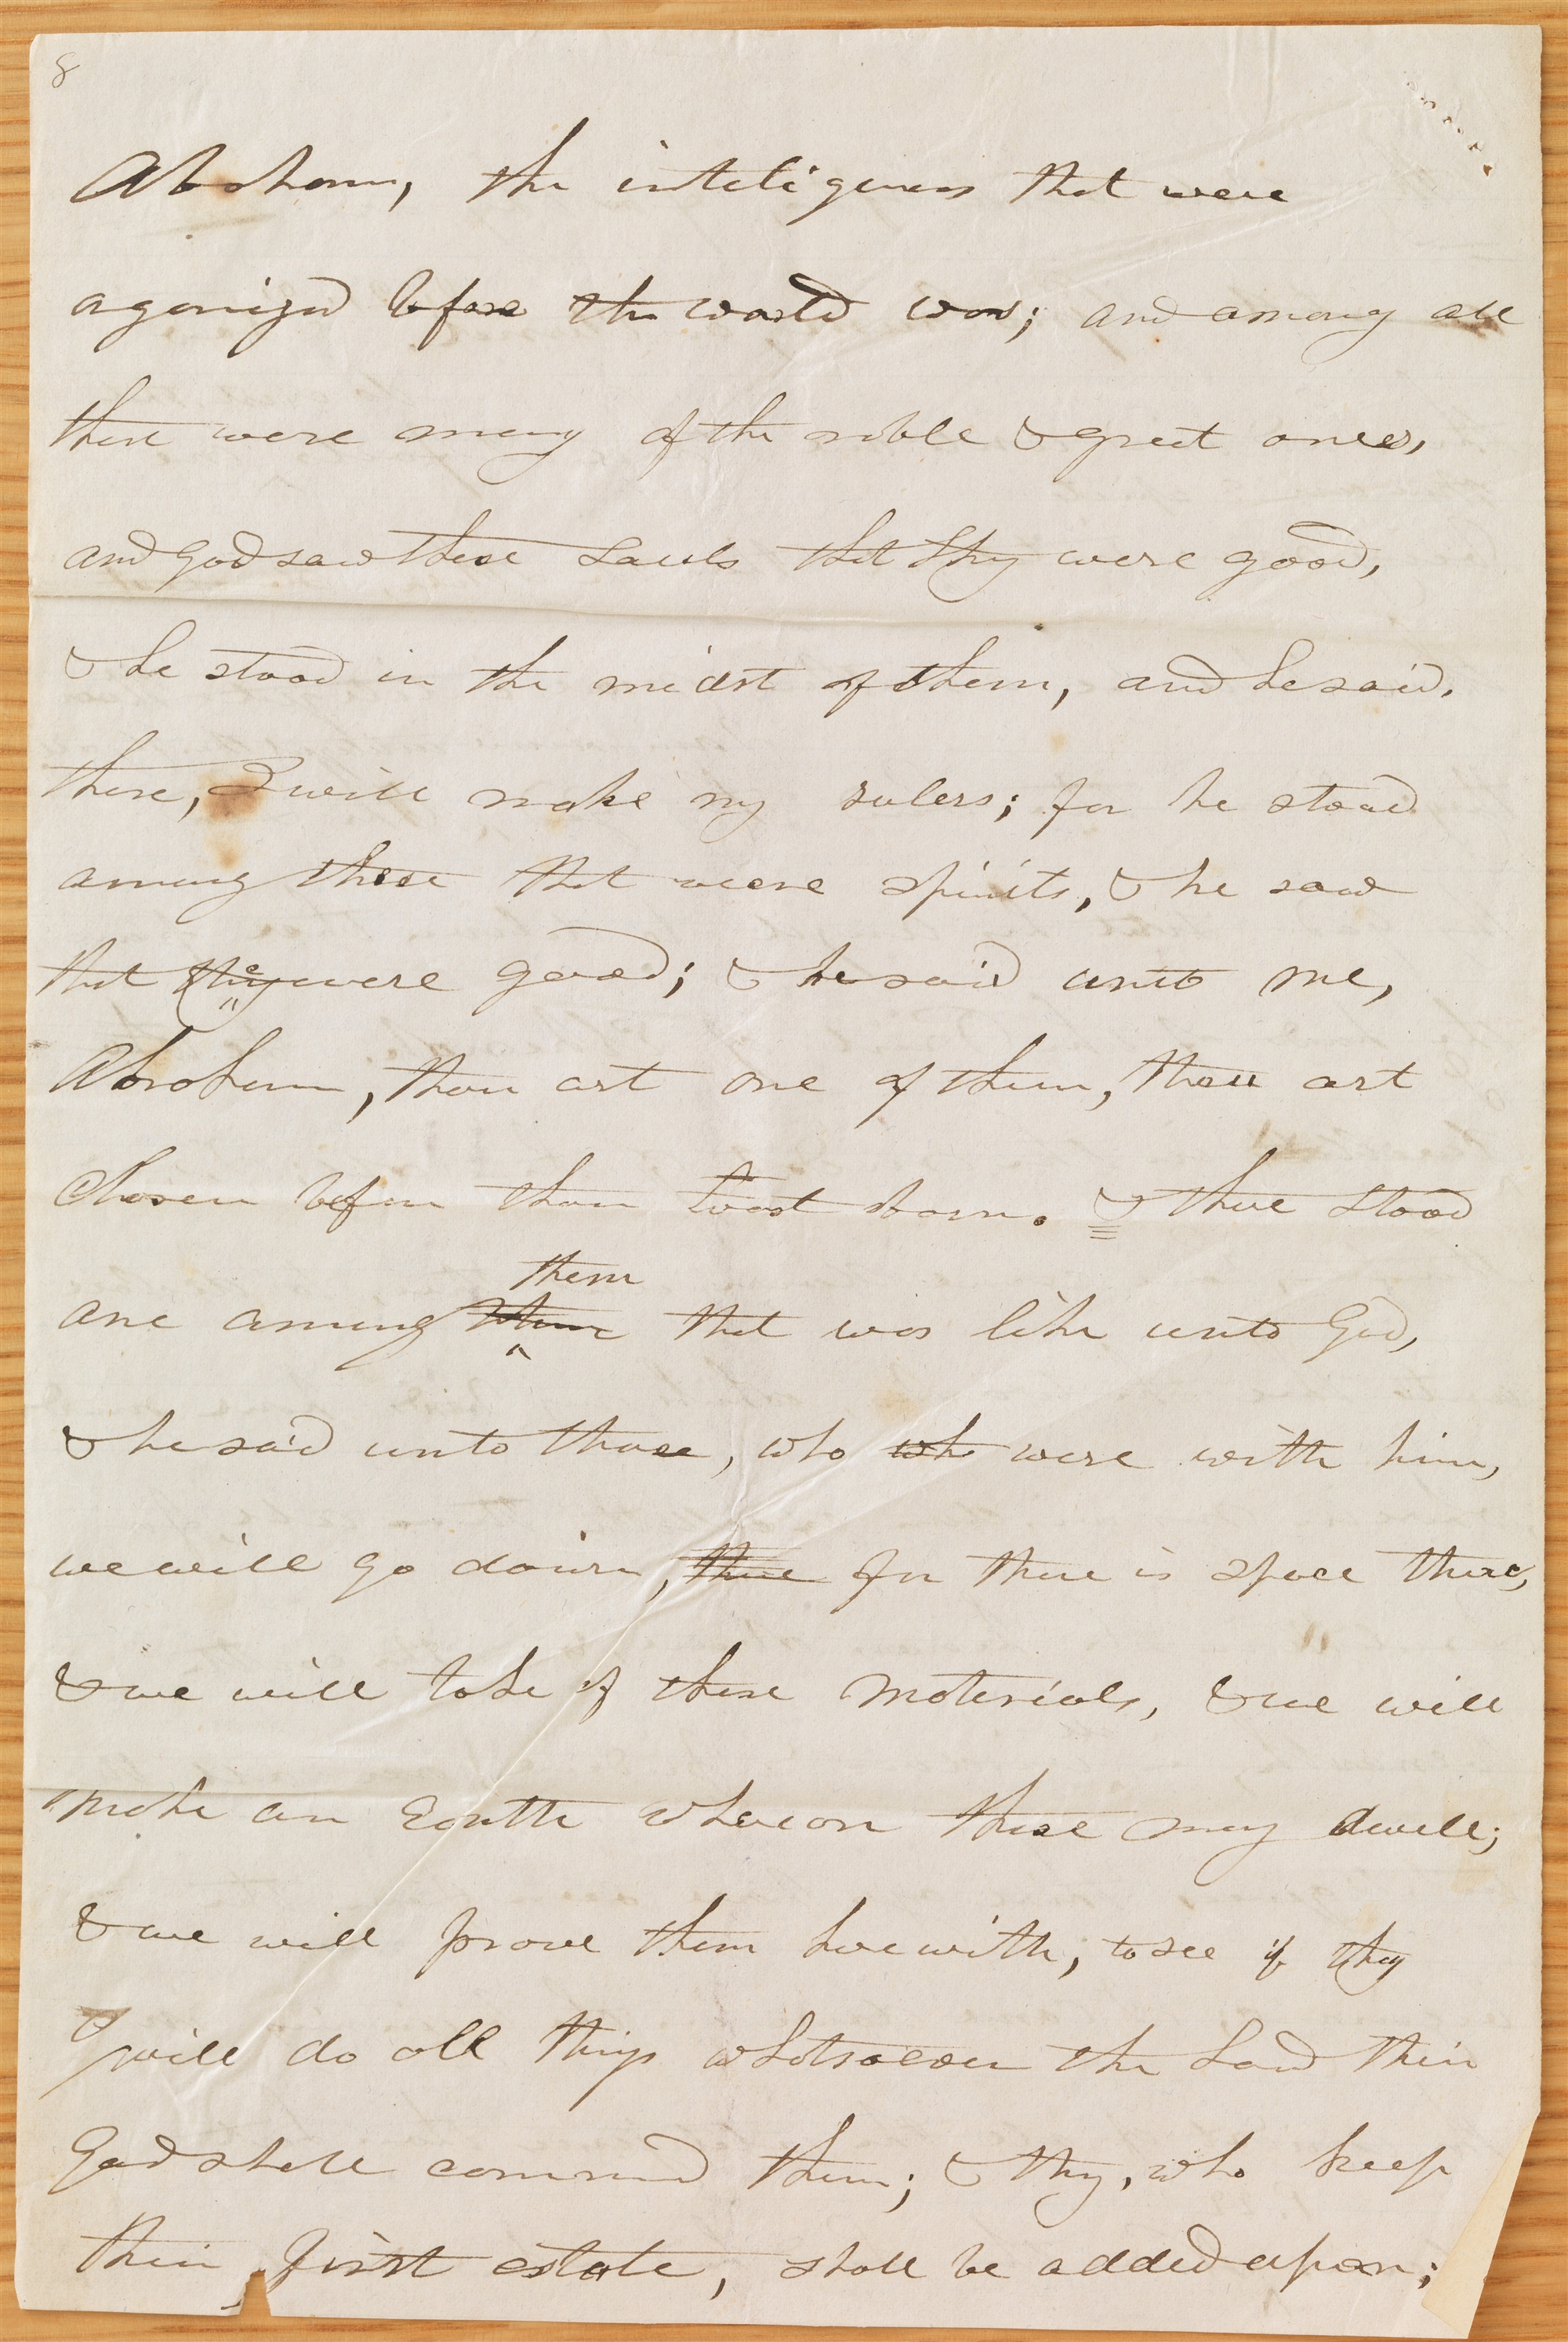 8
Abraham, the inteligences that were
aganized before the world was; and among all
these were many of the noble & great ones,
and God saw these Souls that they were good,
& he stood in the midst of them, and he said,
these, I will make my rulers; for he stood
among those that were spirits, & he saw
that they were good; & he said unto me,
Abraham, thou art one of them, thou art
Chosen before thou wast born. & there stood
them
one among them that was like unto God,
& he said unto those, who who were with him,
we will go down, there for there is space there,
& we will take of these materials, & we will
make an Earth whereon these may dwell;
& we will prove them herewith, to see if they
will do all things whatsoever the Lord their
God shall command them; & they, who keep
their first estate, shall be added upon;